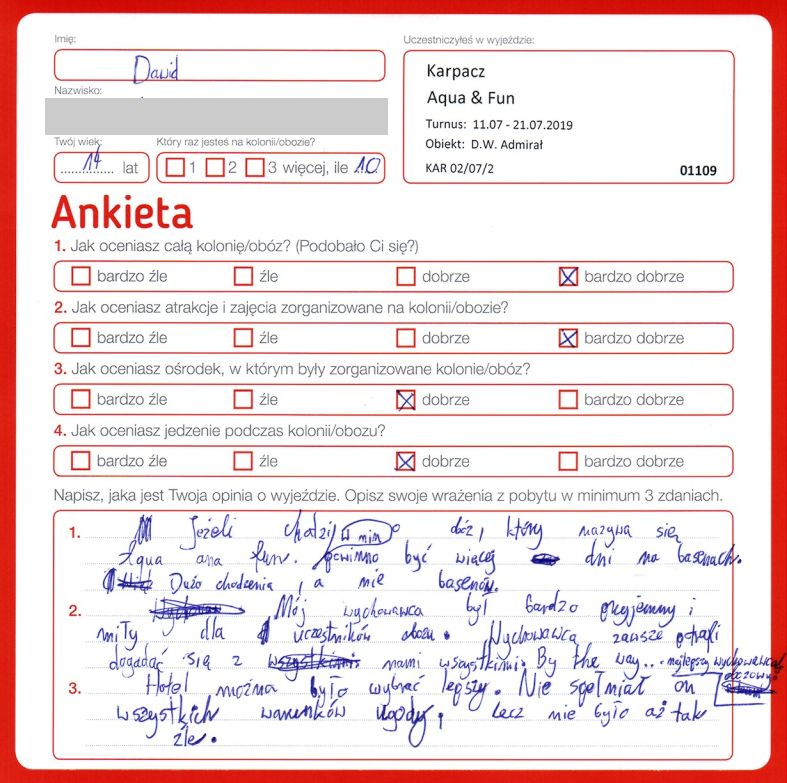 Imię:
Dawid
Uczestniczyłeś w wyjeździe:
Karpacz
Aqua & Fun
Turnus: 11.07 - 21.07.2019
Obiekt: D.W. Admirał
KAR 02/07/2
01109
Nazwisko:
Twój wiek:
14 lat
Który raz jesteś na kolonii/obozie?
1 2 3 więcej, ile 10
Ankieta
1. Jak oceniasz całą kolonię/obóz? (Podobało Ci się?)
bardzo źle źle dobrze bardzo dobrze
2. Jak oceniasz atrakcje i zajęcia zorganizowane na kolonii/obozie?
bardzo źle źle dobrze bardzo dobrze
3. Jak oceniasz ośrodek, w którym były zorganizowane kolonie/obóz?
bardzo źle źle dobrze bardzo dobrze
4. Jak oceniasz jedzenie podczas kolonii/obozu?
bardzo źle źle dobrze bardzo dobrze
Napisz, jaka jest Twoja opinia o wyjeździe. Opisz swoje wrażenia z pobytu w minimum 3 zdaniach.
1. Jeżeli chodzi o obóz, który nazywa się
Aqua and fun. w nim powinno być więcej dni na basenach.
Dużo chodzenia, a nie basenów.
2. Mój wychowawca był bardzo przyjemny i
miły dla uczestników obozu. Wychowawca zawsze potrafi
dogadać się z nami wszystkimi. By the way.. najlepszy wychowawca
obozowy!
3. Hotel można było wybrać lepszy. Nie spełniał on
wszystkich warunków ugody, lecz nie było aż tak
źle.